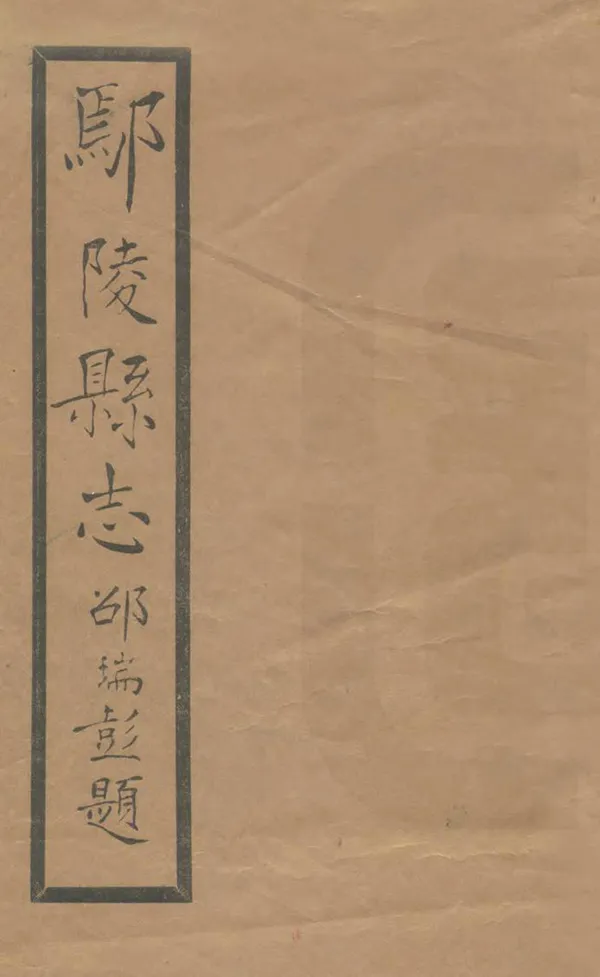 鄢陵縣志 邵瑞彭題